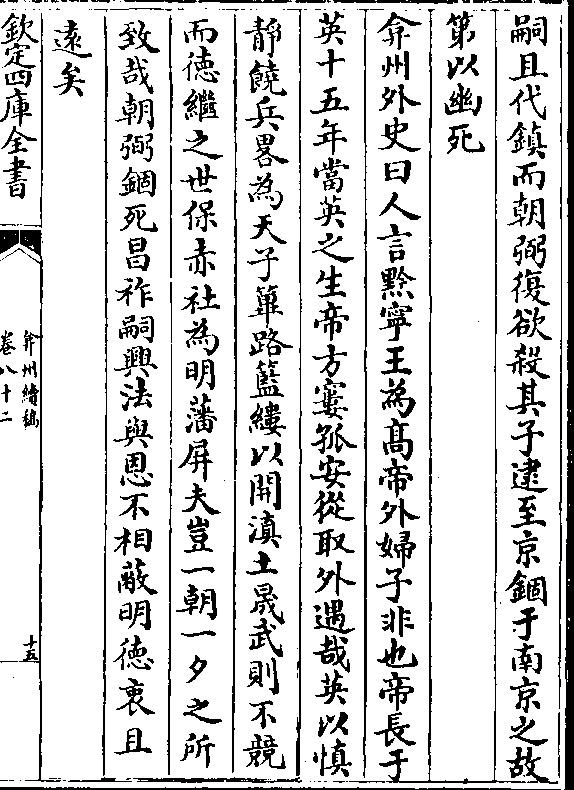 嗣且代鎮而朝弼復欲殺其子逮至京錮于南京之故
第以幽死
弇州外史曰人言黔寧王為髙帝外婦子非也帝長于
英十五年當英之生帝方窶孤安從取外遇哉英以慎
靜饒兵畧為天子蓽路藍縷以開滇土晟武則不競
而徳繼之世保赤社為明藩屏夫豈一朝一夕之所
致哉朝弼錮死昌祚嗣興法與恩不相蔽明徳衷且
逺矣
欽定四庫全書
弇州續稿
卷八十二
十五